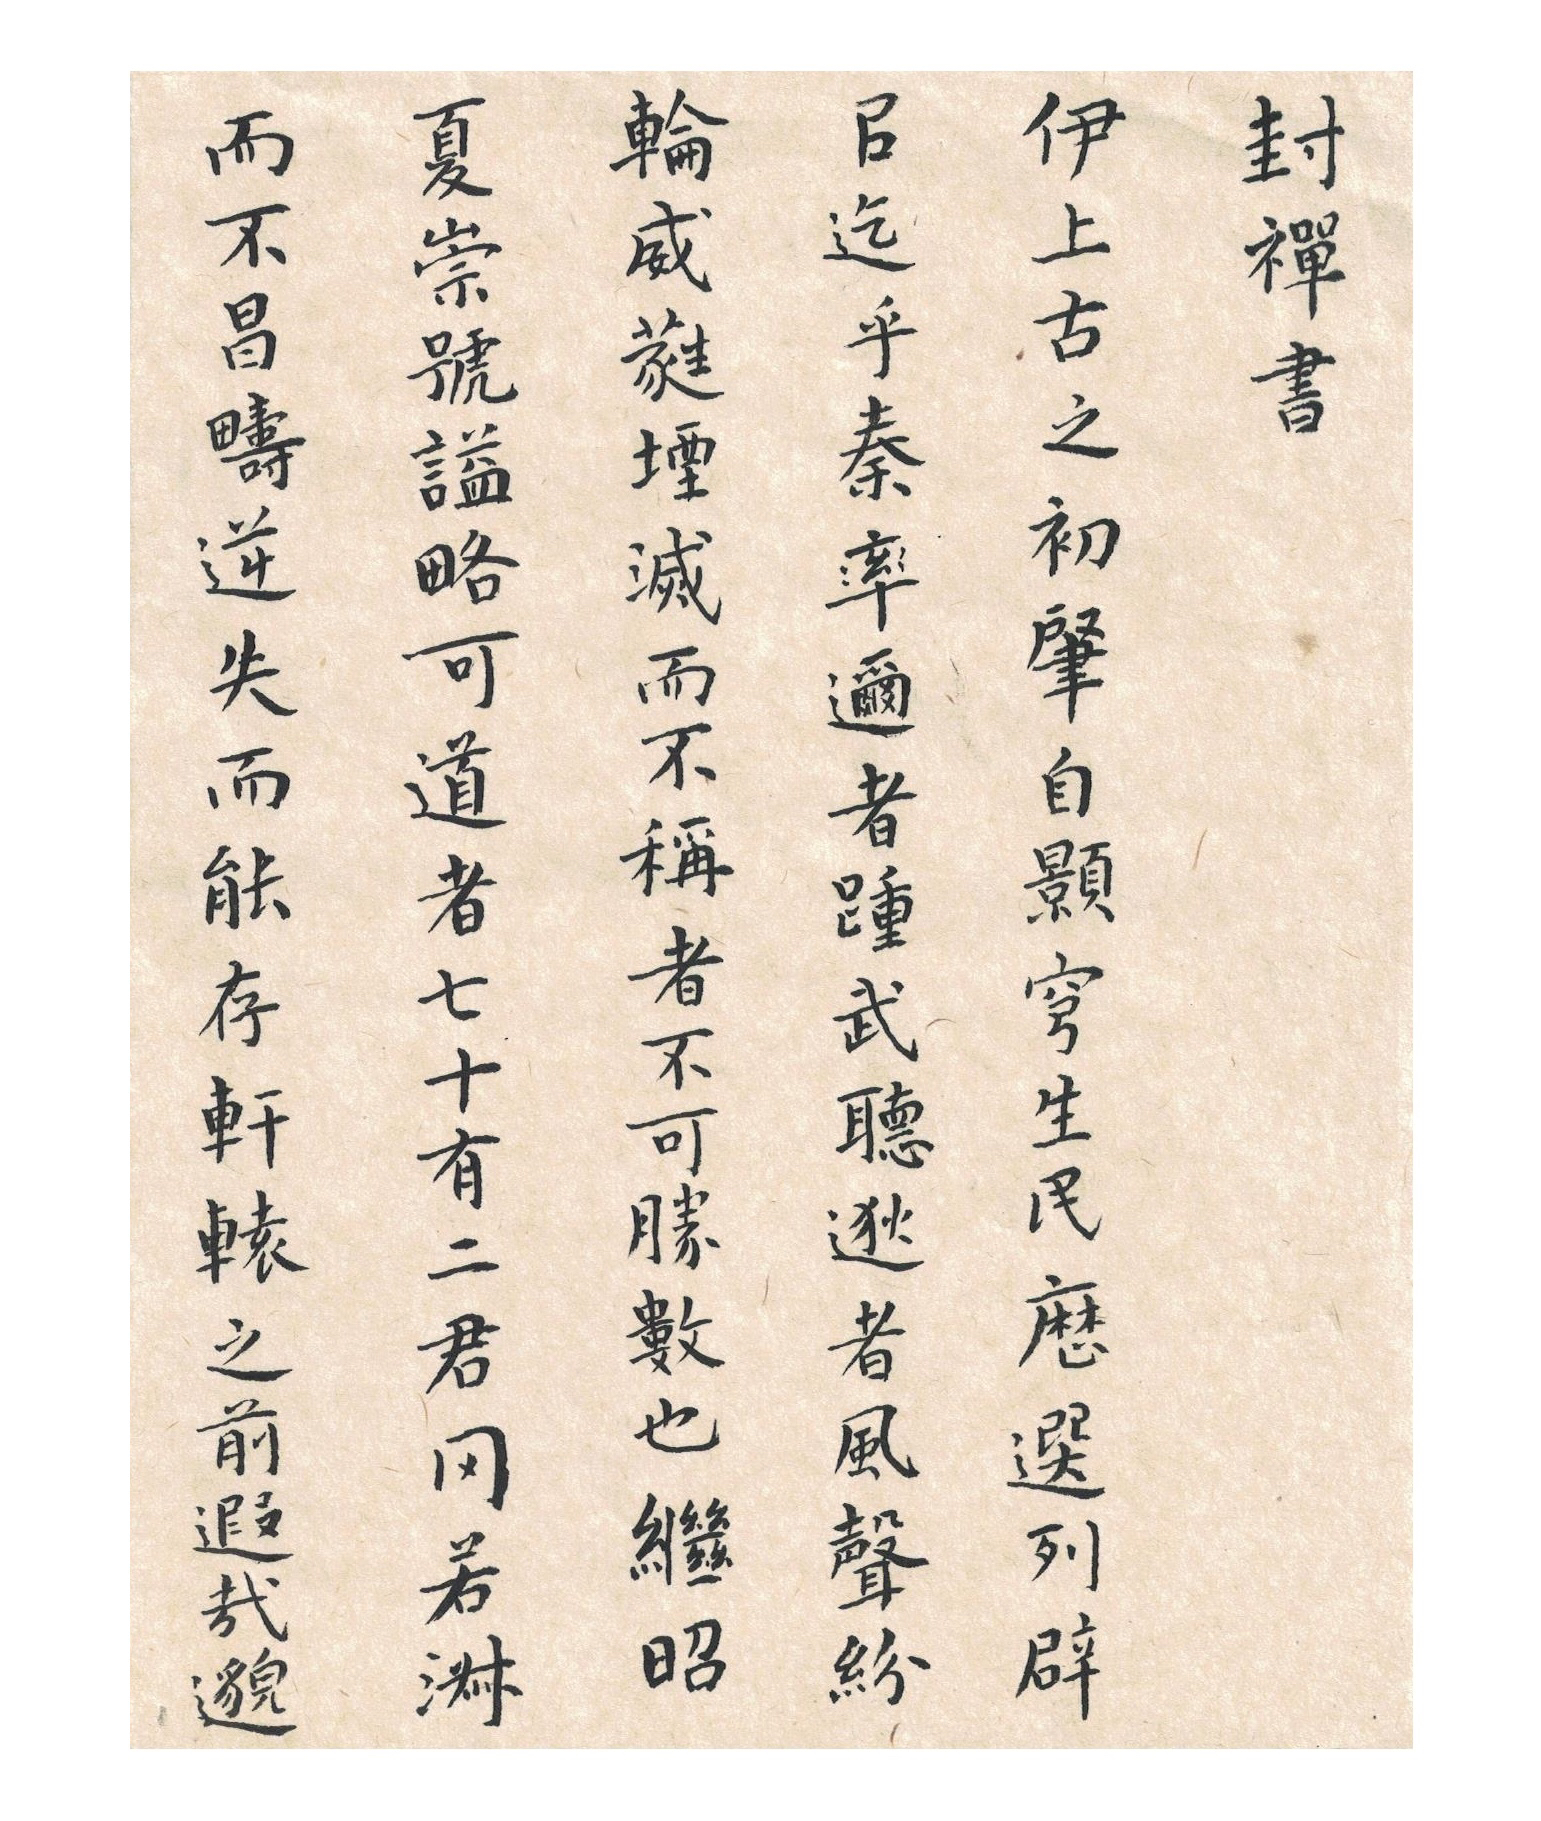 封禪書
伊上古之初肈自顥穹生民歷選列辟
㠯迄乎秦率邇者踵武聽逖者風聲紛
輪威蕤堙滅而不稱者不可勝數也繼昭
夏崇號謚略可道者七十有二君罔若淑
而不昌疇逆失而能存軒轅之前遐哉邈